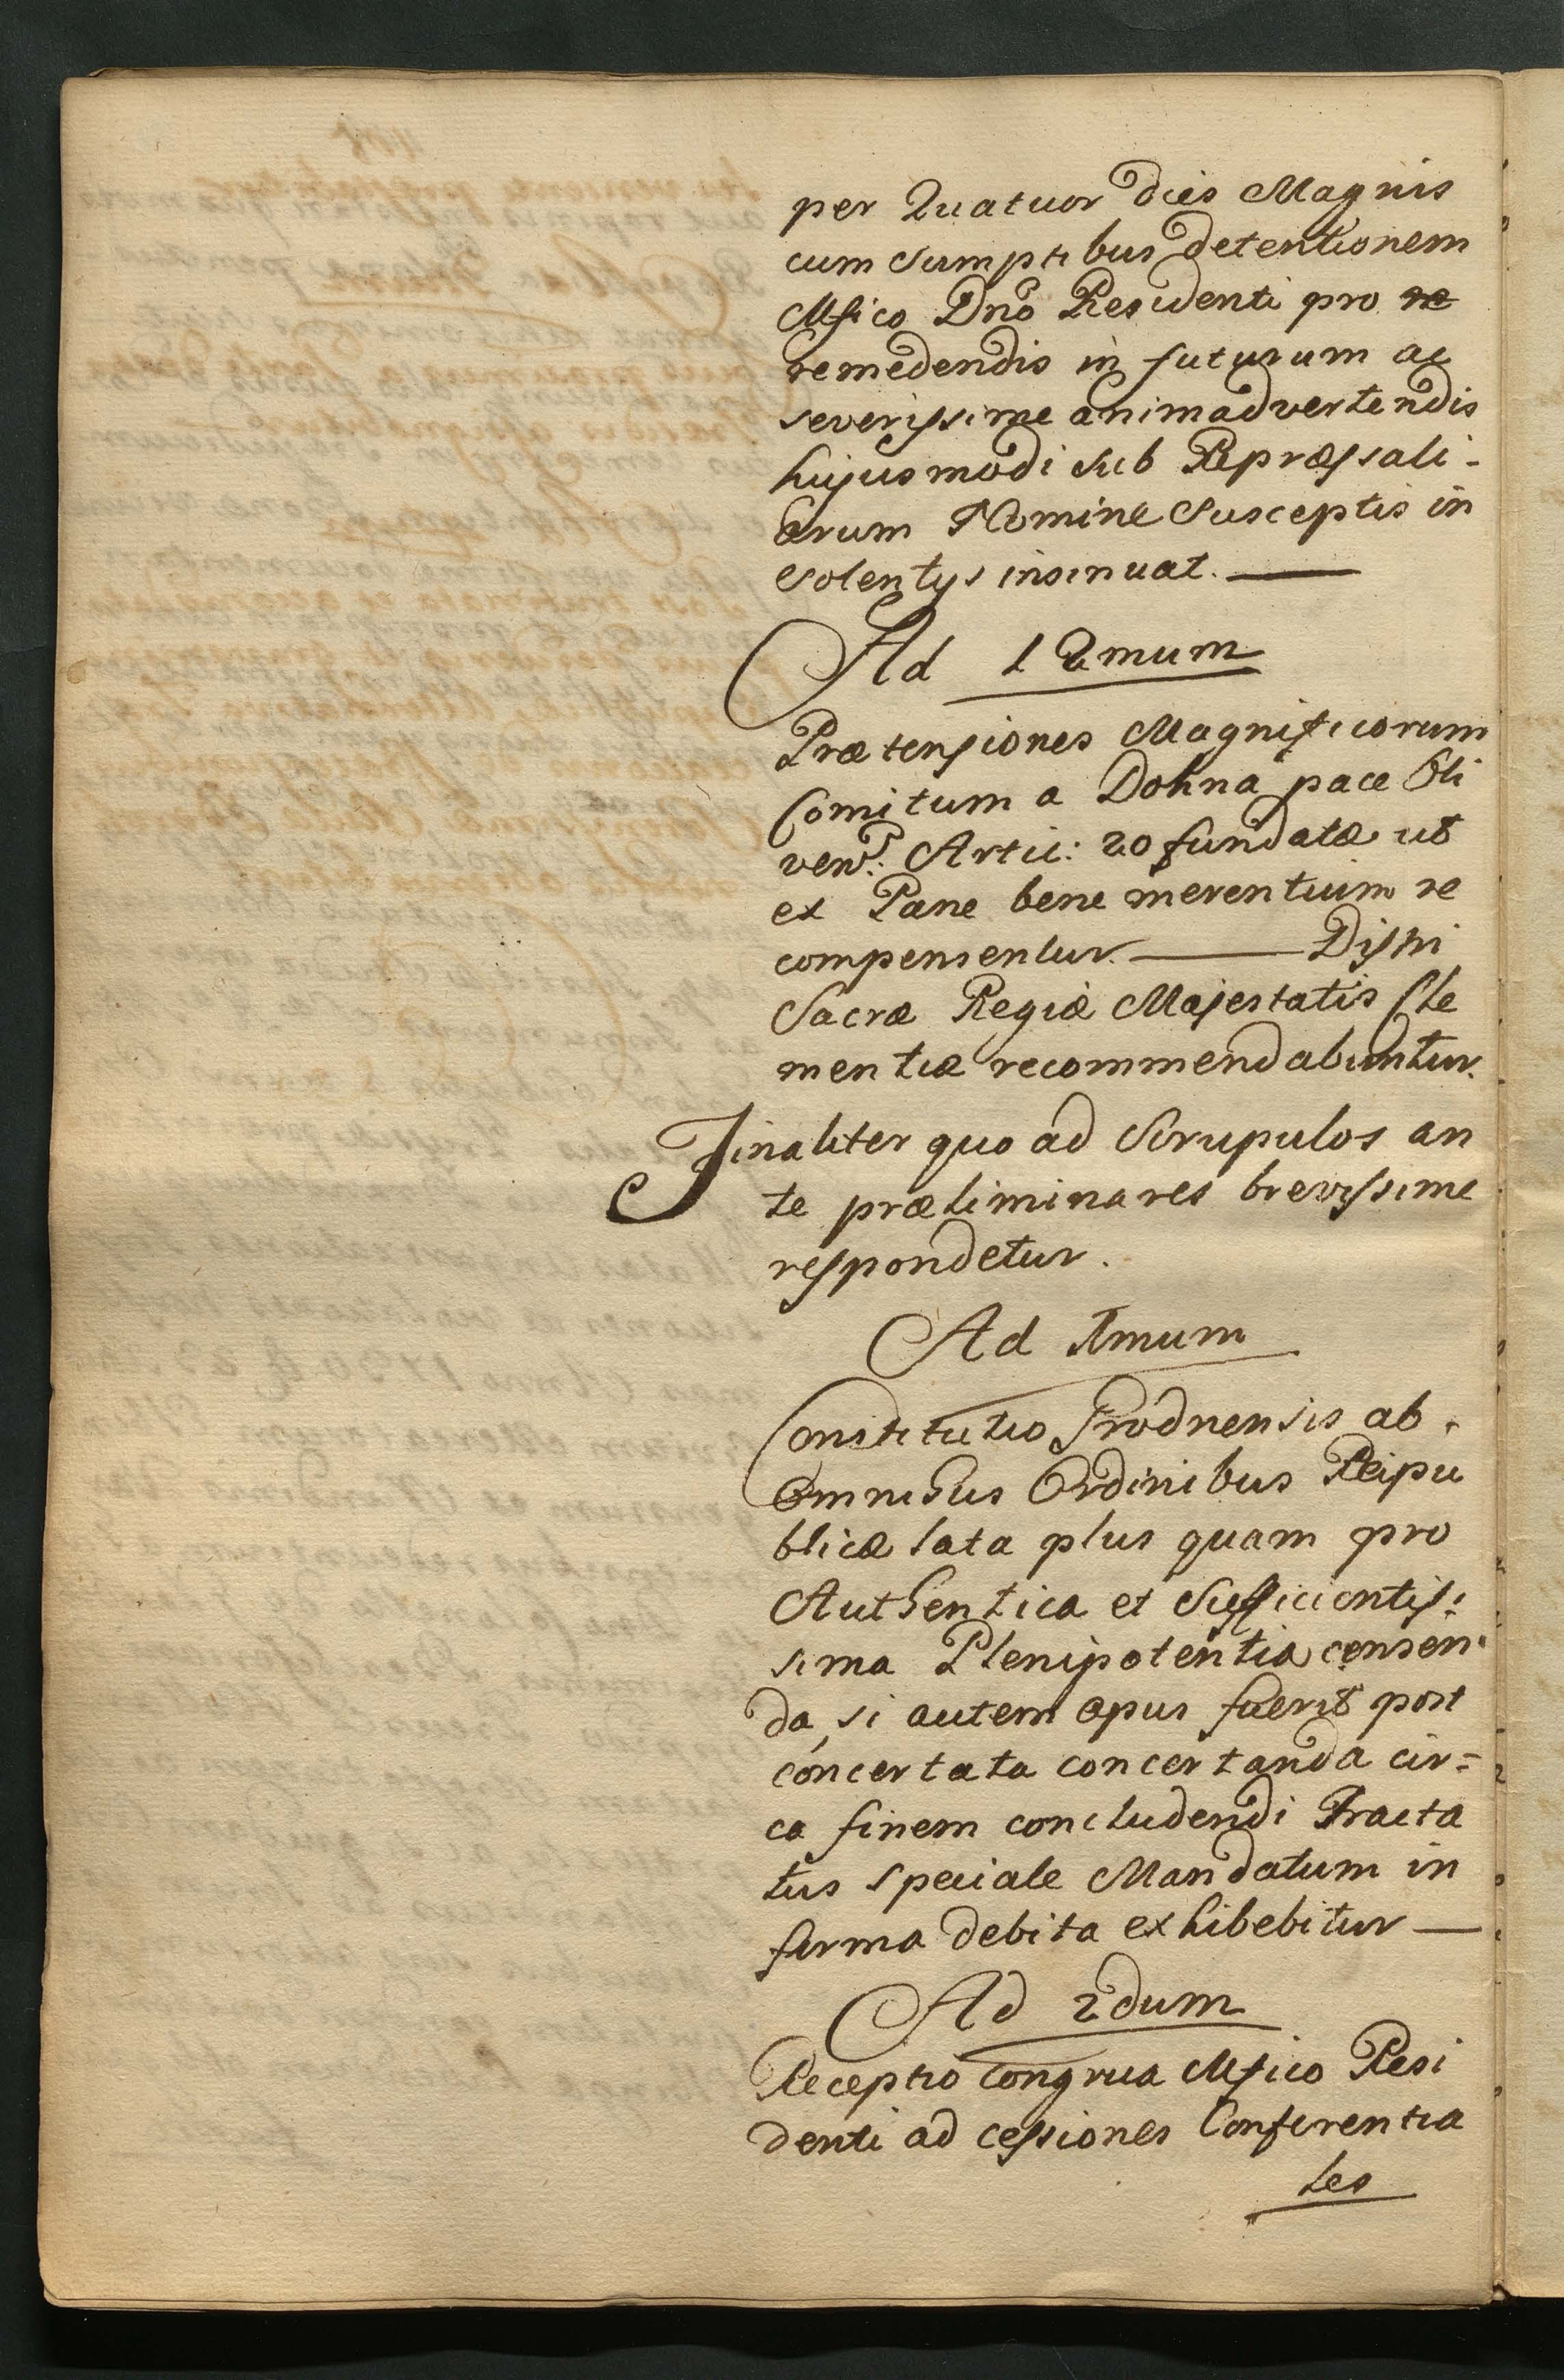 per Quatuor dies Magnis
cum Sumptibus detentionem
Mfico Dno Residenti pro re
remedendis in futurum ac
severissime animadvertendis
hujusmodi Sub Repræssali-
arum Nomine Susceptis in
solentys insinuat.
Ad 12mum
Prætensiones Magnificorum
Comitum a Dohna pace Oli
ven: Artic: 20 fundatæ ut
ex Pane bene merentium re
compensentur. Distri
Sacræ Regiæ Majestatis Cle
mentiæ recommendabuntur.
Finaliter quo ad Scrupulos an
te præliminares brevissime
respondetur.
Ad 1mum
Constitutio Grodnensis ab
Omnibus Ordinibus Reipu
blicæ lata plus quam pro
Authentica et Sufficientis:
sima Plenipotentia censen
da, si autem opus fuerit post
concertata concertanda cir=
ca finem concludendi Tracta
tus speciale Mandatum in
forma debita exhibebitur
Ad 2dum
Receptio Congrua Mfico Resi
denti ad cessiones Conferentia
les